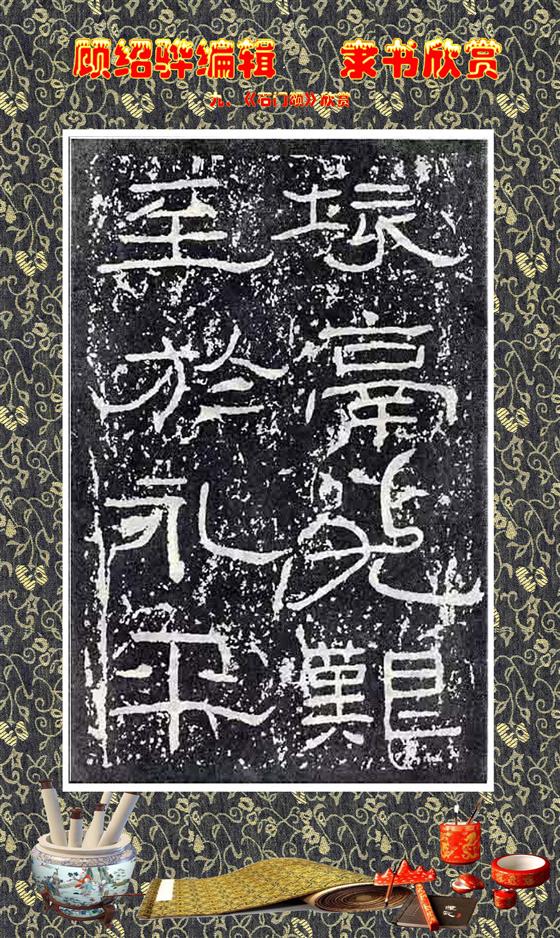 顾绍骅编辑 隶书欣赏
九、《石门颂》欣赏
垓鬲尤艱
至於永平